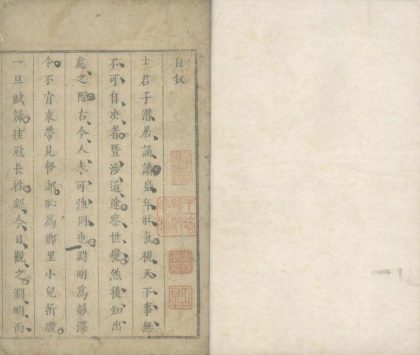 自敘
士君子潛居誦讀盛年壯氣視天下事無
不可自决者暨涉道途察世變然後知出
處之際古今人未可強同也淵明為彭澤
令不肯束帶見督郵為鄉里小兒折腰
一旦賦歸挂冠長往繇今日觀之淵明而